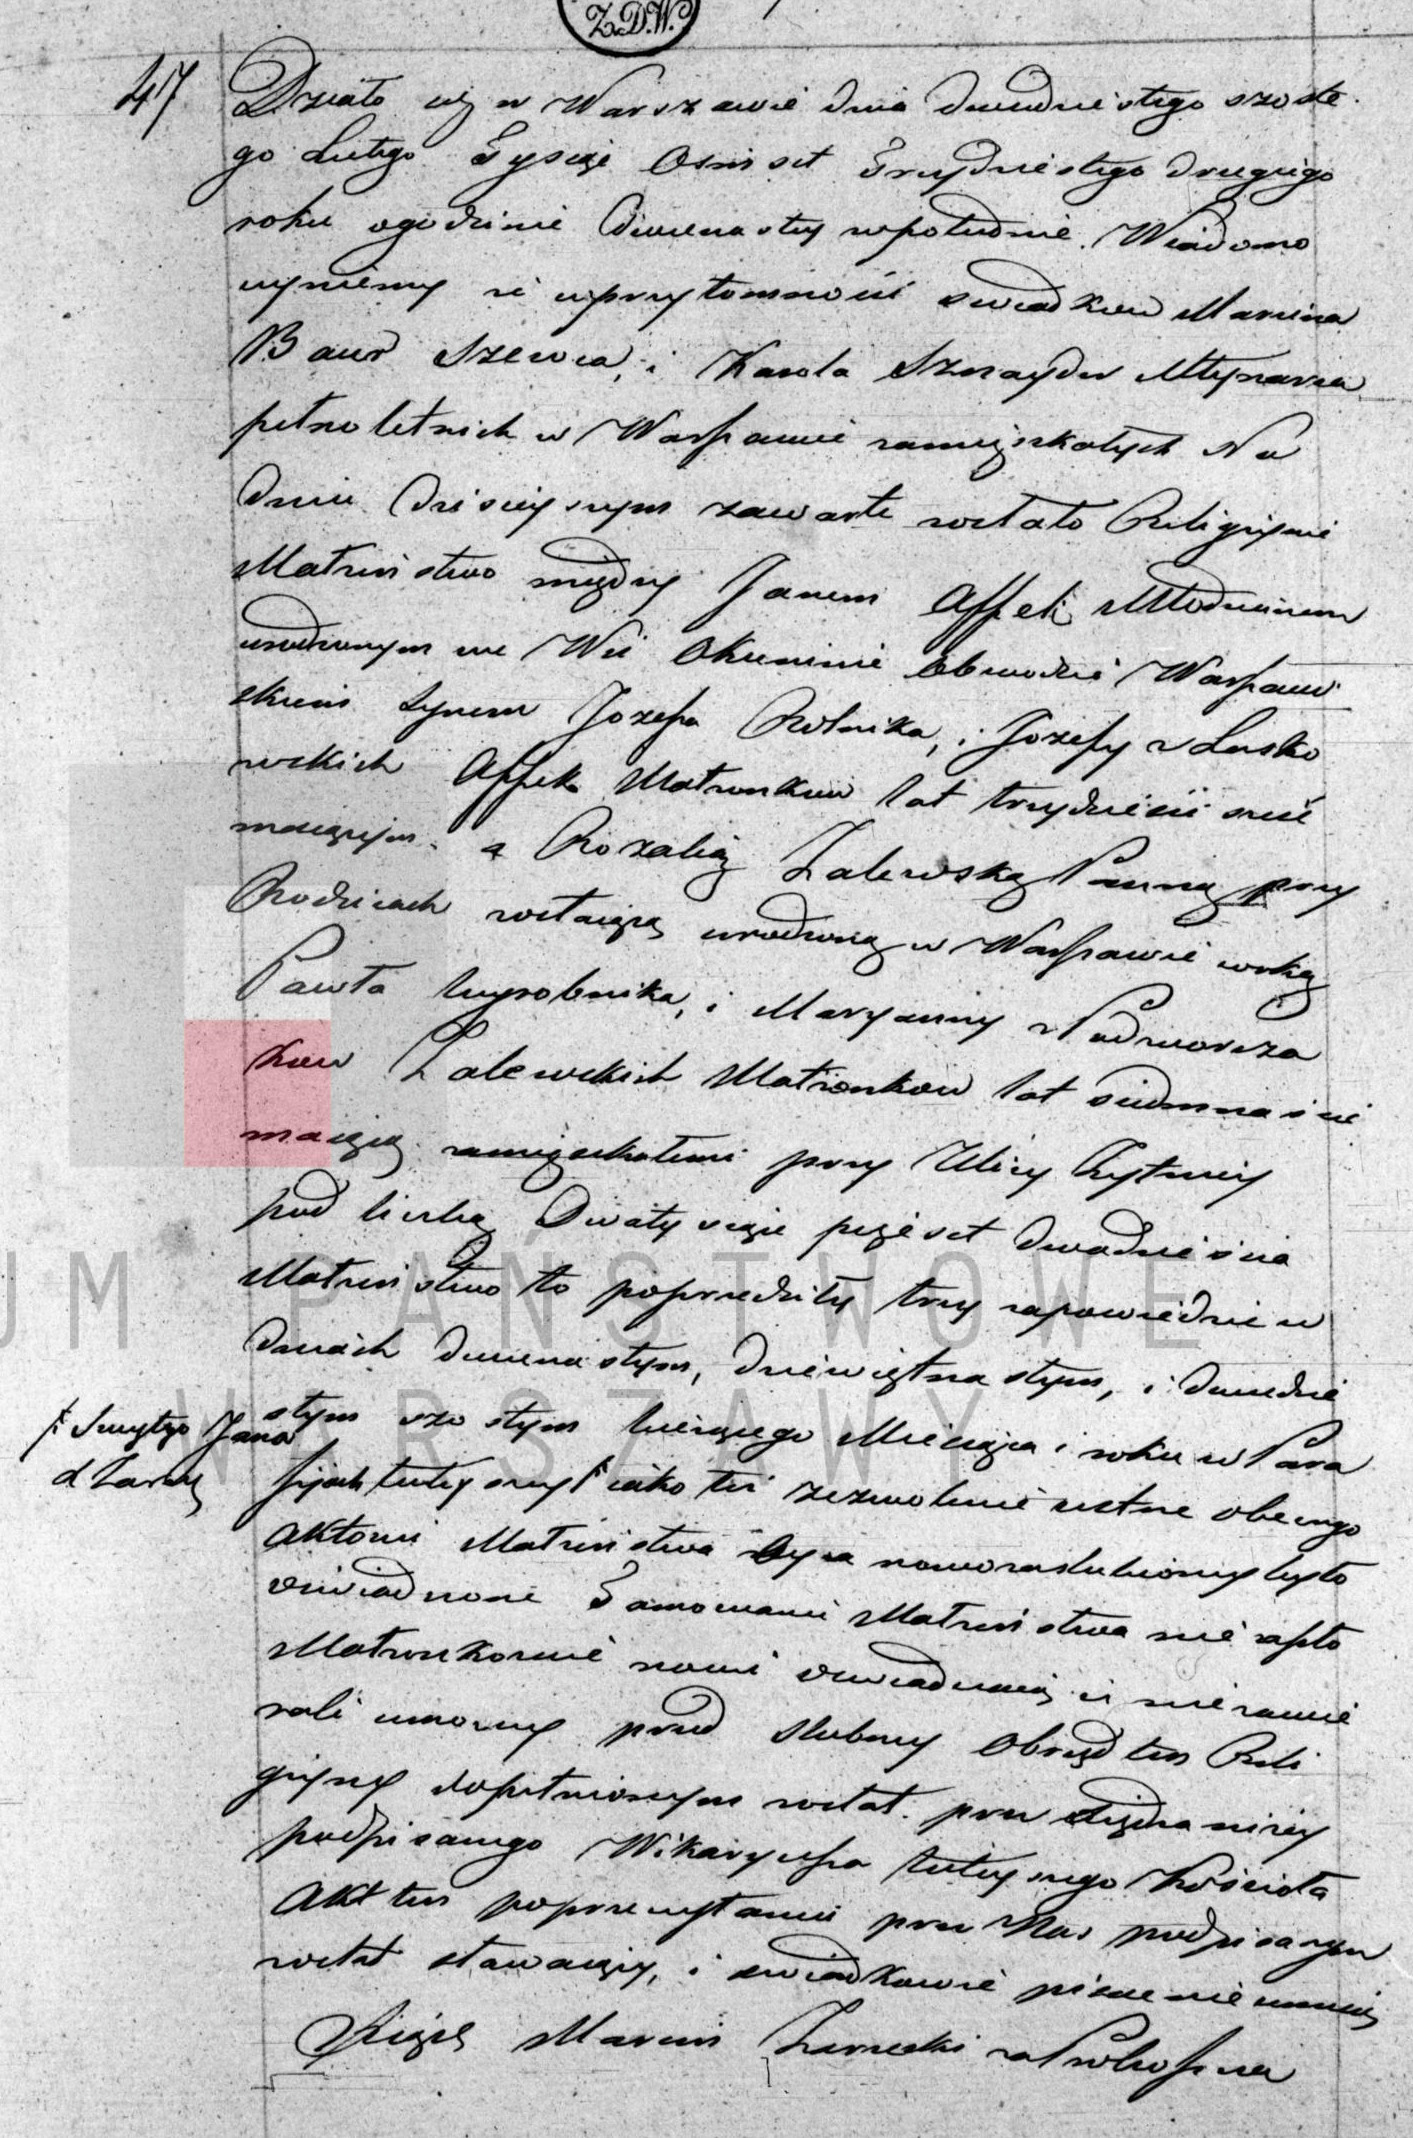 Z.D.W.
47
Działo się w Warszawie dnia dwudziestego szoste
go Lutego Tysiąc Osmset Trzydziestego drugiego
roku ogodzinie dwunasty wpołudnie. Wiadomo
czyniemy że wprzytomności swiadkow Marcina
Baur Szewca, i Karola Sznayder Młynarza
pełnoletnich w Warszawie zamięszkałych Na
dniu dzisieyszym zawarte zostało Religiyne
Małżeństwo między Janem Affek Młodzianem
urodzonym we Wsi Okuniewie Obwodzie Warszaw
skiem synem Jozefa Rolnika, i Jozefy z Lasko
wskich Affek Małżonkow lat trzydzieści sześć
maiącym. a Rozalią Zalewską Panną przy
Rodzicach zostaiącą urodzoną w Warszawie corką
Pawła Wyrobnika, i Maryanny z Podworza
kow Zalewskich Małżonkow lat siedmnaście
maiącą zamięszkałemi przy Ulicy Żytniey
pod liczbą Dwatysiące pięćset dwadzieścia
Małżeństwo to poprzedziły trzy zapowiedzie w
dniach dwunastym, dziewiętnastym, i dwudzie
stym szostym bieżącego Miesiąca i roku w Para
fijach tuteyszey ł iako też zezwolenie ustne obecnego
ł Swiętego Jana
d Zarazy
Aktowi Małżeństwa Oyca nowozaślubioney było
oświadczone Tamowanie Małżeństwa nie zaszło
Małżonkowie nowi oswiadczaią iż nie zawie
rali umowy przed slubney Obrząd ten Reli
giyny dopełnionym został przez Xiędza niżey
podpisanego Wikaryusza tuteyszego Kościoła
Akt ten poprzeczytaniu przez Nas podpisanym
został stawaiący, i swiadkowie pisac nie umieią
Xiądz Marcin Zarzecki za Proboszcza
ARCHIWUM PAŃSTWOWE
WARSZAWY